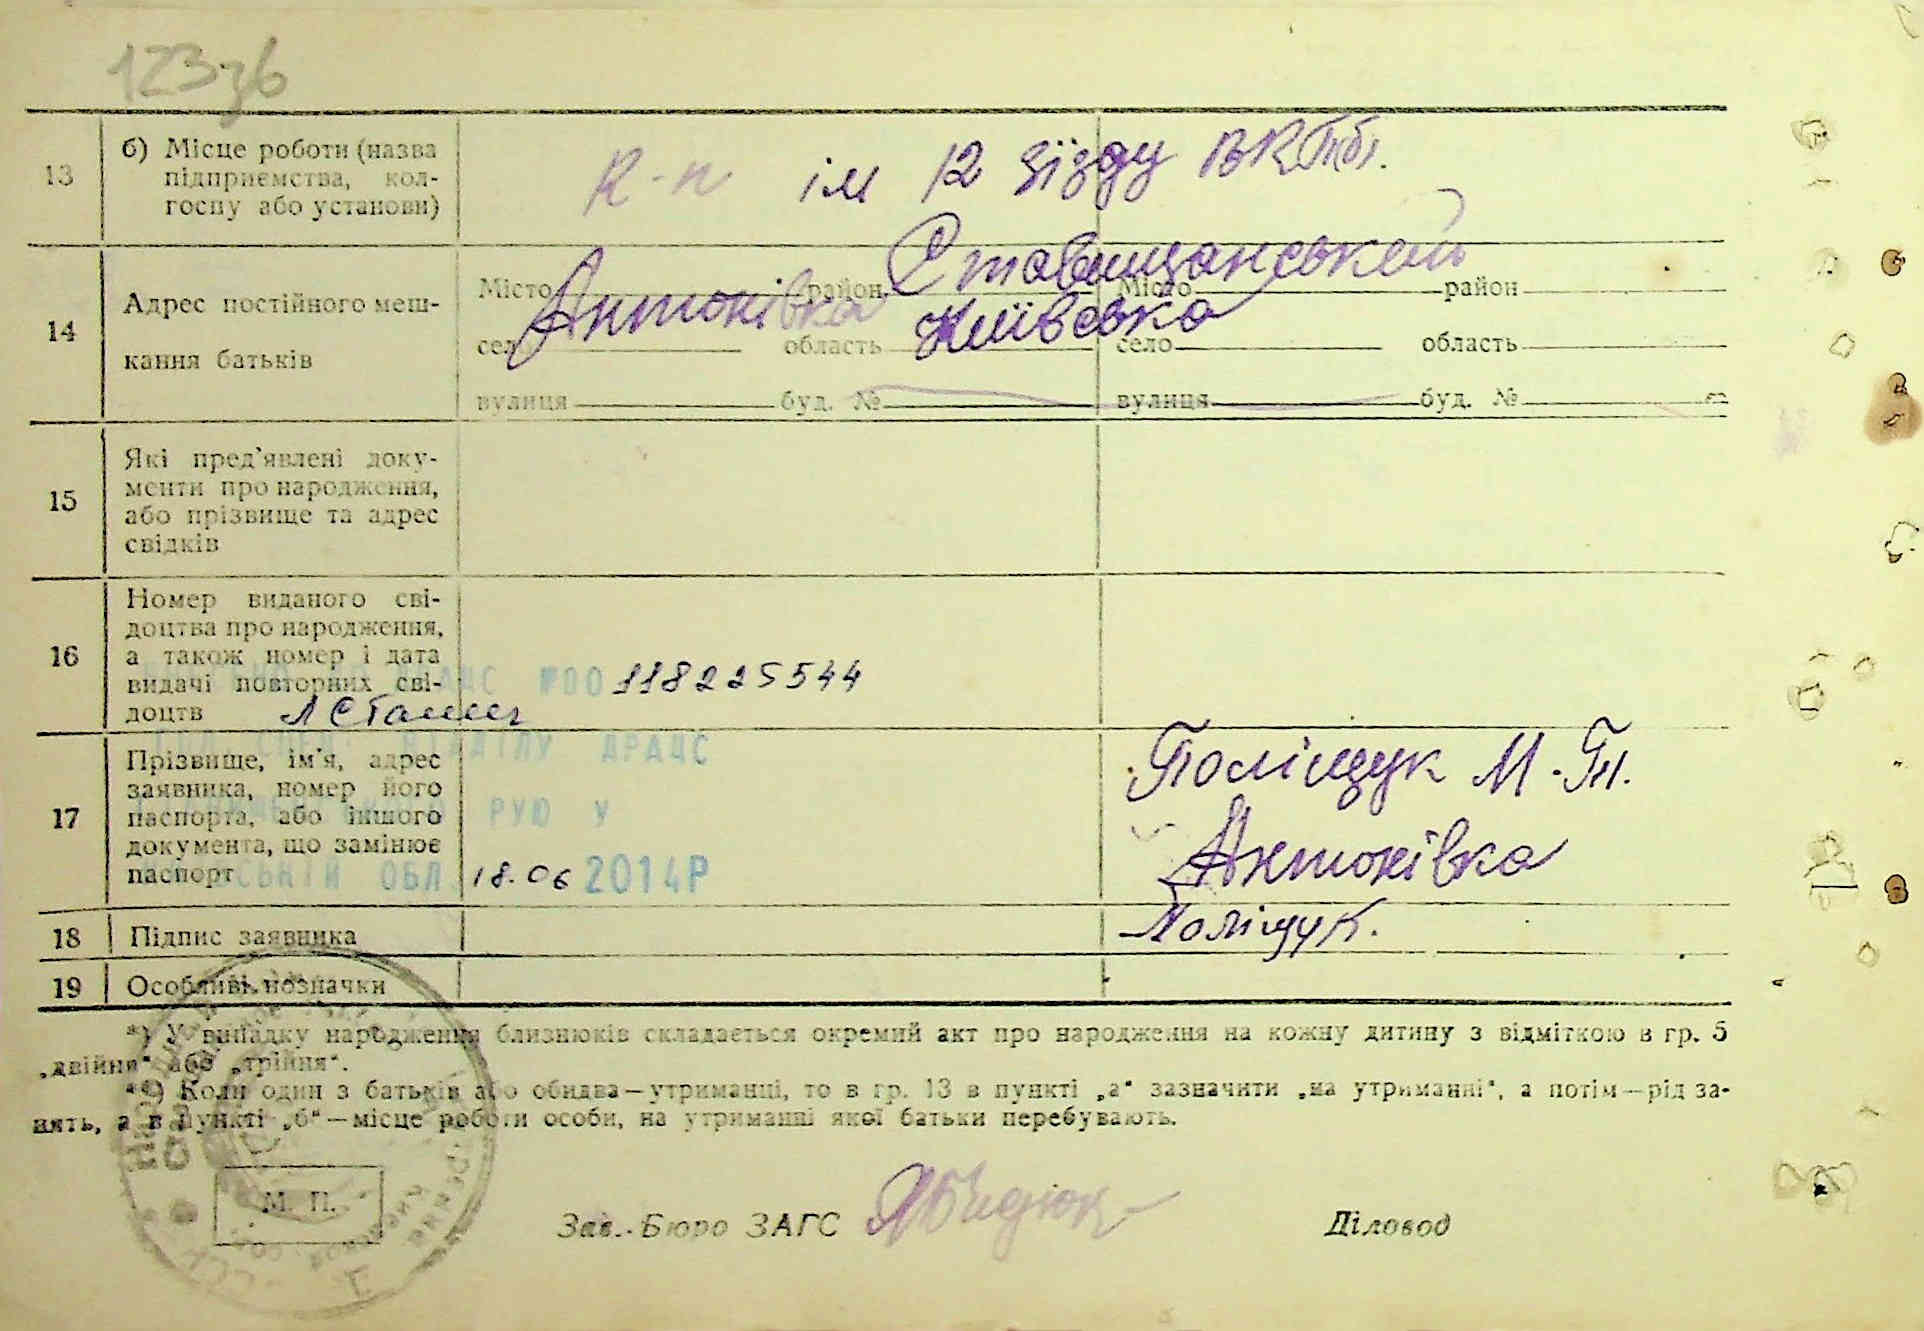 123зв
13 б) Місце роботи (назва
підприємства, кол-
госпу або установи)
к-п ім 12 зїзду ВКП(б).
14 Адрес постійного меш-
кання батьків
Місто район Ставищанський Місто район
село Антонівка область Київська село область
вулиця буд. № вулиця буд. №
15 Які пред'явлені доку-
менти про народження,
або прізвище та адрес
свідків
16 Номер виданого сві-
доцтва про народження,
а також номер і дата
видачі повторних сві-
доцтв
ДРАЦС №00118225544
ВІДДІЛУ ДРАЦС
РУЮ У
ОБЛ 18.06 2014Р
17 Прізвище, ім'я, адрес
заявника, номер його
паспорта, або іншого
документа, що замінює
паспорт
Поліщук М. П.
Антонівка
18 Підпис заявника Поліщук.
19 Особливі позначки
*) У випадку народження близнюків складається окремий акт про народження на кожну дитину з відміткою в гр. 5
„двійня“ або „трійня“.
**) Коли один з батьків або обидва—утриманці, то в гр. 13 в пункті „а“ зазначити „на утриманні“, а потім—рід за-
нять, а в пункті „б“—місце роботи особи, на утриманні якої батьки перебувають.
М. П.
Зав. Бюро ЗАГС Діловод